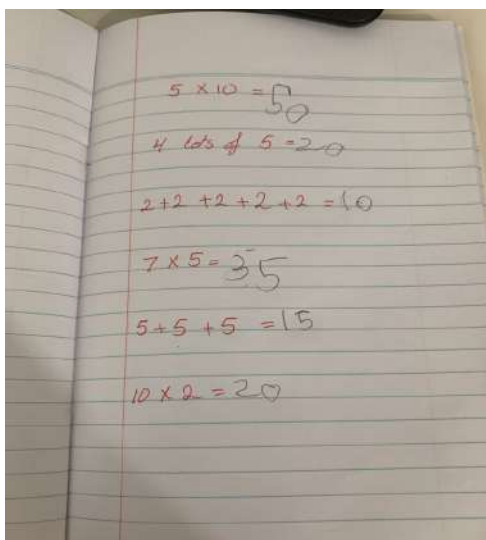 5 × 10 = 50
4 lots of 5 = 20
2+2 +2 +2 +2 = 10
7 × 5 = 35
5+5 +5 = 15
10 × 2 = 20